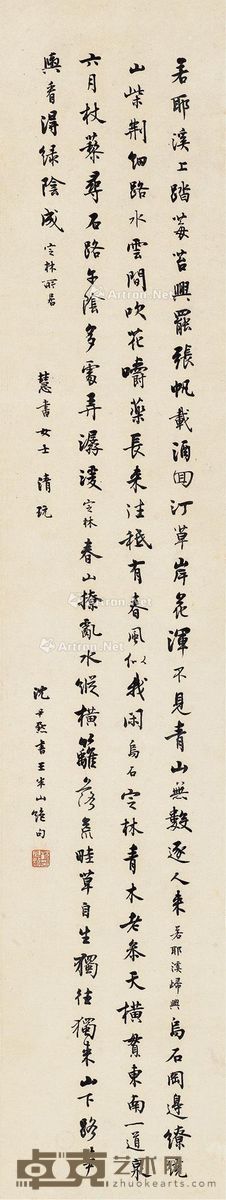 若耶溪上踏莓苔興罷張帆載酒回汀草岸花渾不見青山無數逐人來若耶溪歸興烏石岡邊繚繞
山柴荆細路水雲間吹花嚼蘂長來往秪有春風似我閑烏石定林青木老參天橫貫東南一道泉
六月杖藜尋石路午陰多處弄潺湲定林春山撩亂水縱橫籬落荒畦草自生獨往獨來山下路筍
輿看得綠陰成定林所居
慧書女士清玩
沈尹默書王半山絕句
Artron.Net
卓克艺术网
www.zhuokearts.com